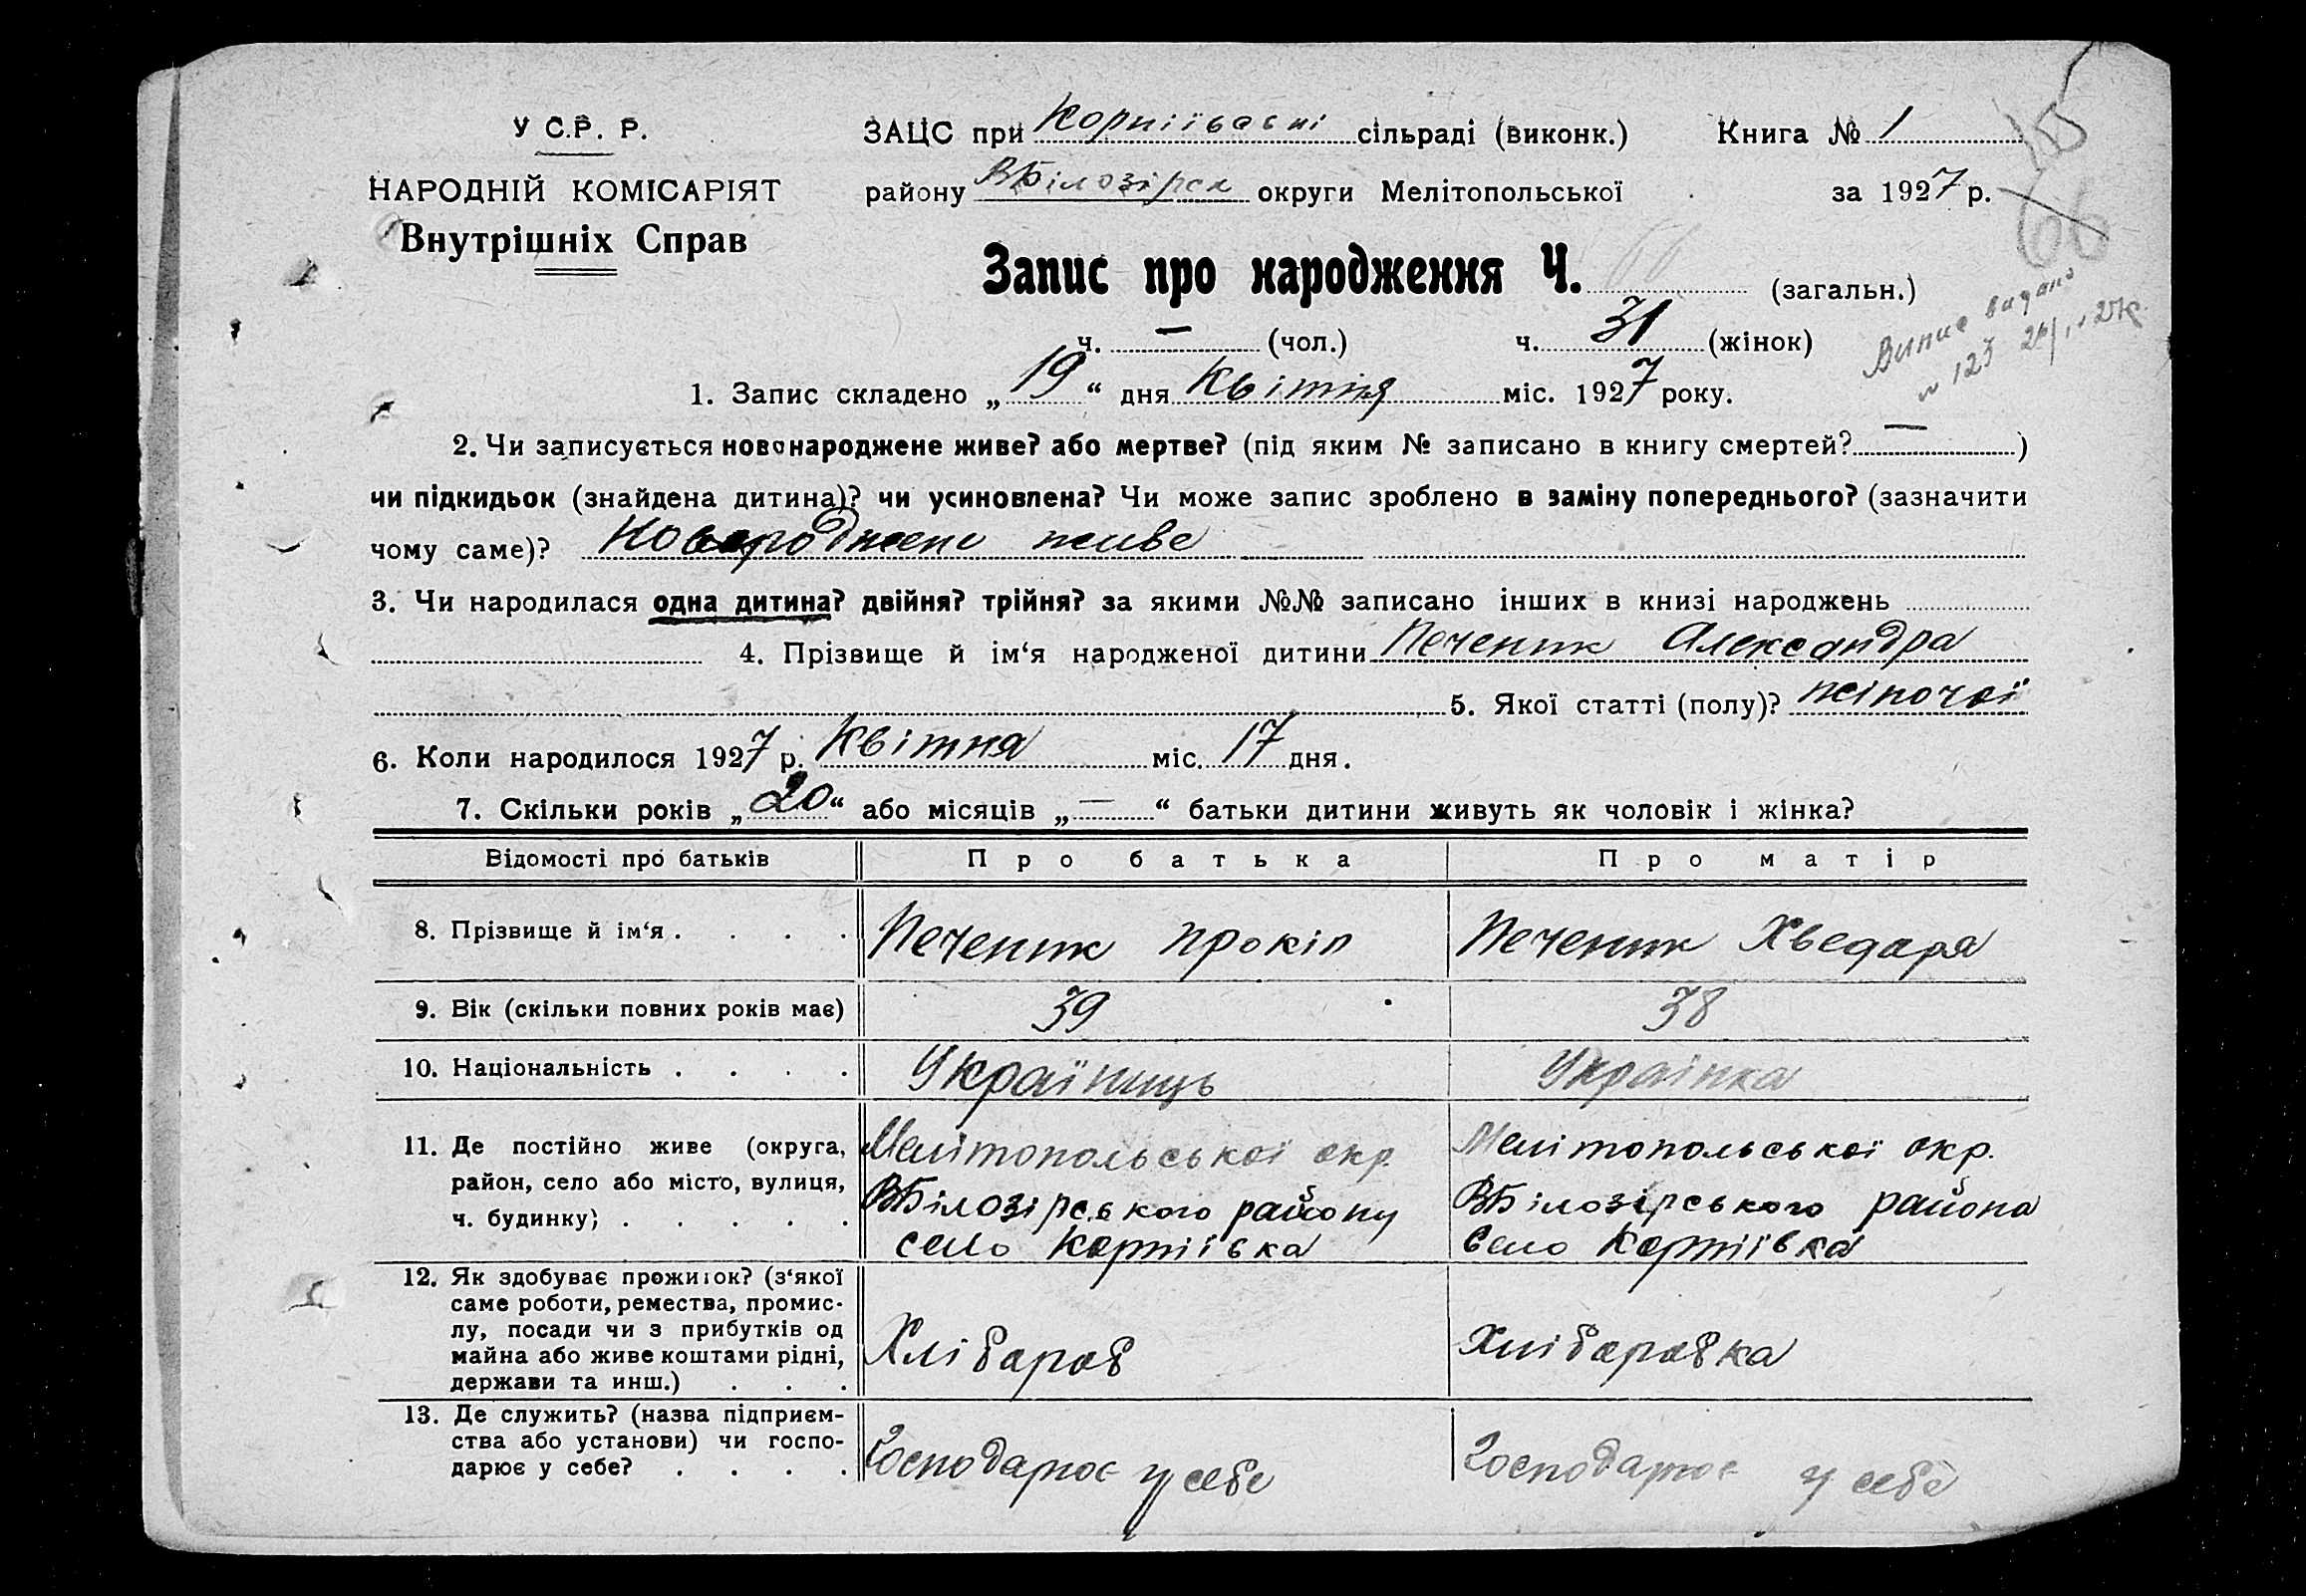 У С.Р. Р.
НАРОДНІЙ КОМІСАРІЯТ
Внутрішніх Справ
ЗАЦС при Корніївські сільраді (виконк.) Книга № 1
району ВБілозірск округи Мелітопольської за 1927 р.
105
66
Запис про народження Ч. 66 (загальн.)
ч. — (чол.) ч. 31 (жінок)
Випис видано
№ 123
1. Запис складено „ 19 “ дня Квітня міс. 1927 року.
2. Чи записується новонароджене живе? або мертве? (під яким № записано в книгу смертей? — )
чи підкидьок (знайдена дитина)? чи усиновлена? Чи може запис зроблено в заміну попереднього? (зазначити
чому саме)? Новороджене живе
3. Чи народилася одна дитина? двійня? трійня? за якими №№ записано інших в книзі народжень
4. Прізвище й ім‘я народженої дитини Печеник Александра
5. Якої статті (полу)? жіночої
6. Коли народилося 1927 р. Квітня міс. 17 дня.
7. Скільки років „ 20 “ або місяців „ — “ батьки дитини живуть як чоловік і жінка?
Відомості про батьків Про батька Про матір
8. Прізвище й ім‘я . . . . Печеник Прокіп Печеник Хведаря
9. Вік (скільки повних років має) 39 38
10. Національність . . . . Україниць Українка
11. Де постійно живе (округа, Мелітопольської окр. Мелітопольської окр.
район, село або місто, вулиця, ВБілозірського району ВБілозірського района
ч. будинку) . . . . . село Корніївка село Корніївка
12. Як здобуває прожиток? (з‘якої
саме роботи, ремества, промис-
лу, посади чи з прибутків од
майна або живе коштами рідні, Хлібароб Хлібаробка
держави та инш.) . . .
13. Де служить? (назва підприєм-
ства або установи) чи госпо-
дарює у себе? . . . . Господарює у себе Господарює у себе